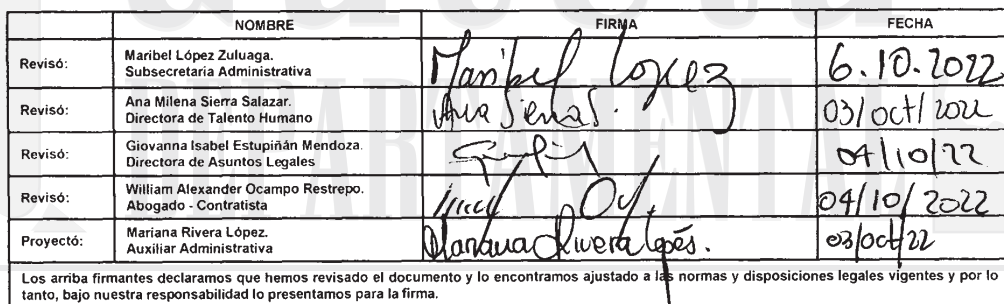 NOMBRE FIRMA FECHA
Revisó: Maribel López Zuluaga.
Subsecretaria Administrativa
Maribel López 6.10.2022
Revisó: Ana Milena Sierra Salazar.
Directora de Talento Humano
Ana Sierra S. 03/oct/2022
Revisó: Giovanna Isabel Estupiñán Mendoza.
Directora de Asuntos Legales
04/10/22
Revisó: William Alexander Ocampo Restrepo.
Abogado - Contratista
04/10/2022
Proyectó: Mariana Rivera López.
Auxiliar Administrativa
Mariana Rivera López. 03/oct/22
Los arriba firmantes declaramos que hemos revisado el documento y lo encontramos ajustado a las normas y disposiciones legales vigentes y por lo
tanto, bajo nuestra responsabilidad lo presentamos para la firma.
DEPARTAMENTAL